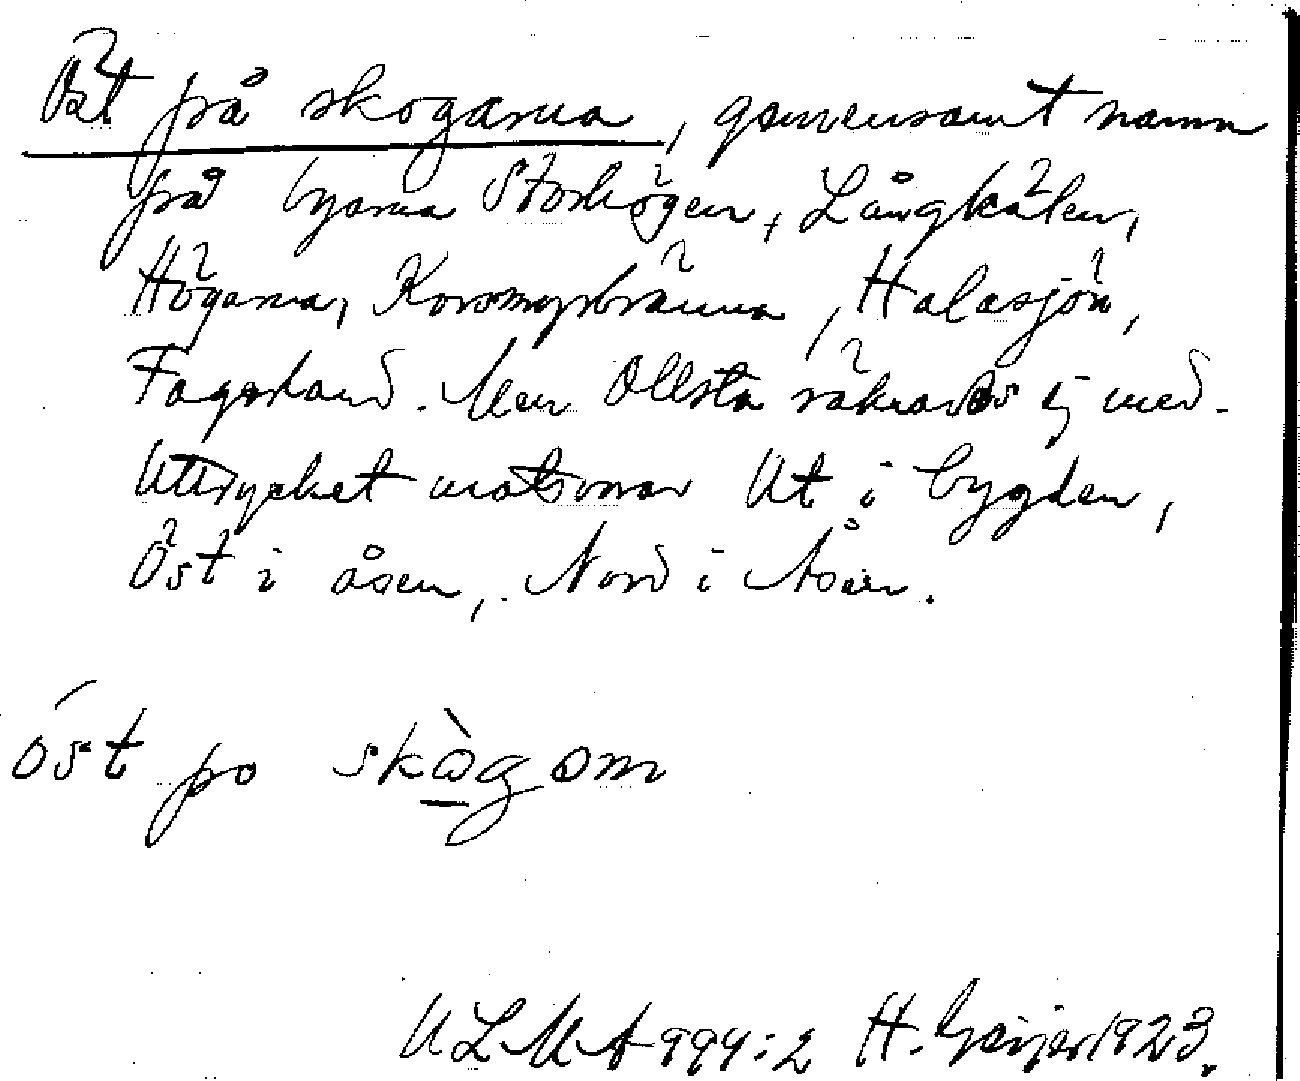 Öst på skogarna, gemensamt namn
på byarna Storhögen, Långkälen,
Högarna, Korsmyrbränna, Halasjön,
Fagerland. Men Ollsta räknades ej med.
Uttrycket motsvarar Ut i bygden,
Öst i åsen, Nord i Åsen.
öst po skògom
ULMA 994:2 H. Geijer 1923.